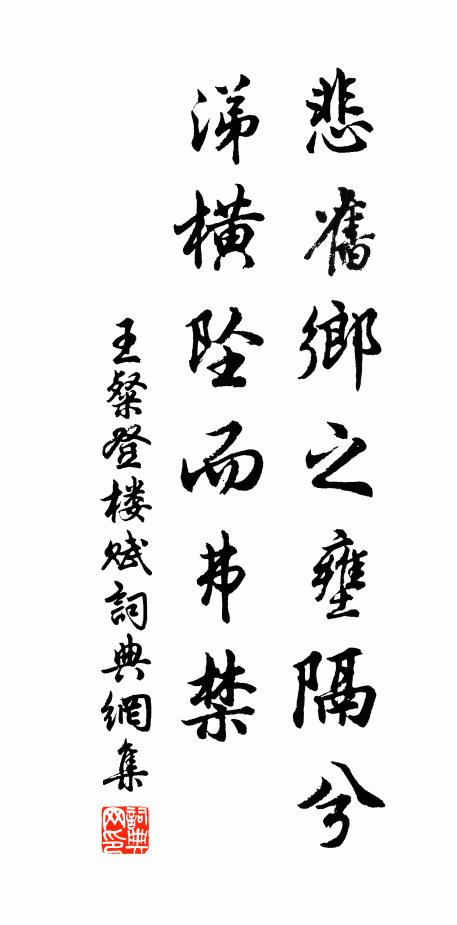 悲舊鄉之壅隔兮
涕橫坠而弗禁
王粲登楼赋詞典網集
詞典
网印